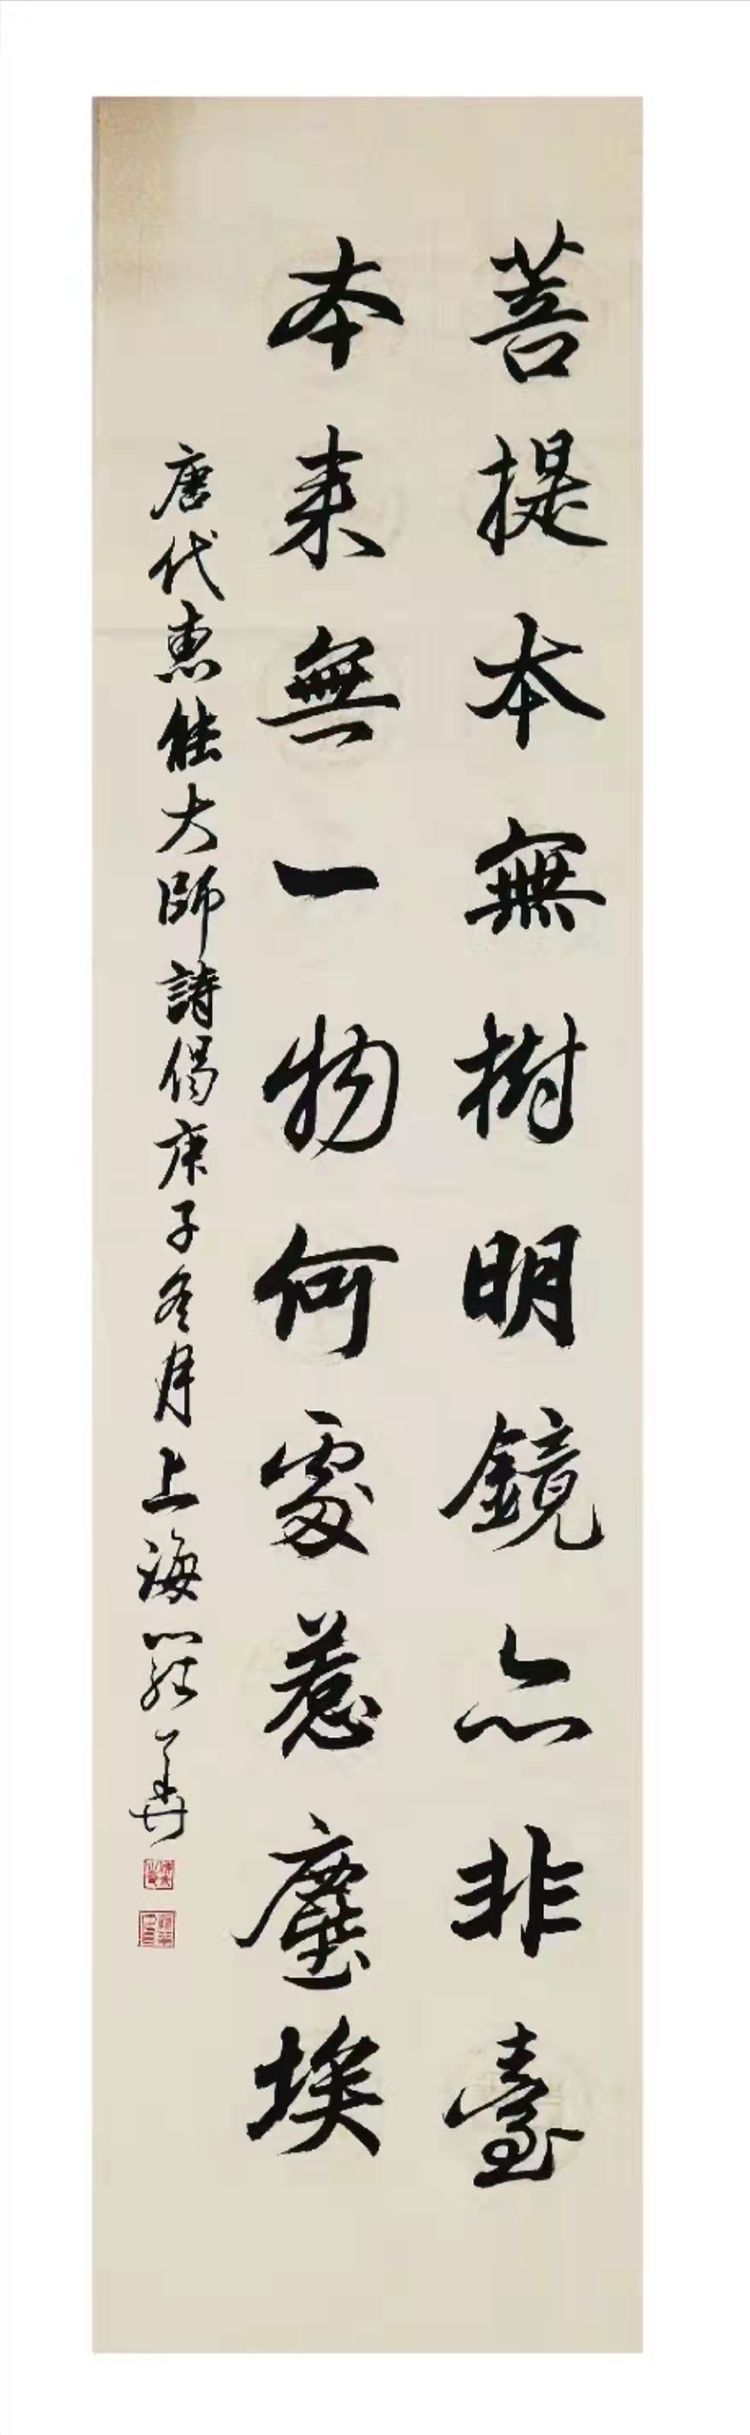 菩提本無樹明鏡亦非臺
本来無一物何處惹塵埃
唐代惠能大師詩偈庚子冬月上海